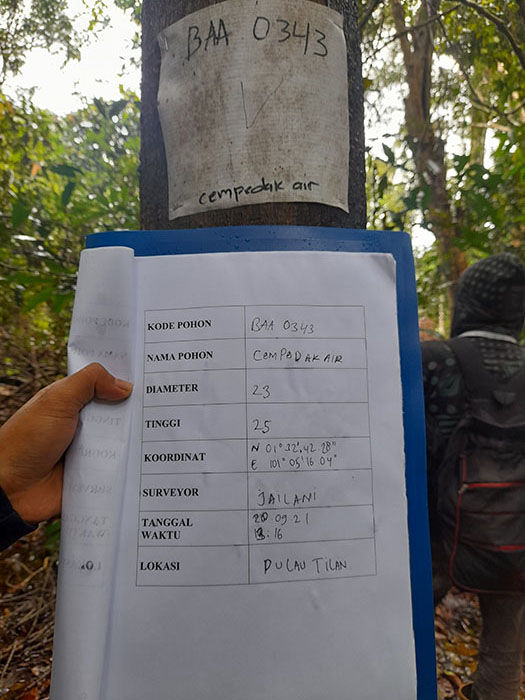 BAA 0343
V
cempedak air
KODE POHON BAA 0343
NAMA POHON CEMPEDAK AIR
DIAMETER 23
TINGGI 25
KOORDINAT N 01° 32'.42 28"
E 101° 05' 16 04"
SURVEYOR JAILANI
TANGGAL 20 09 21
WAKTU 13:16
LOKASI PULAU TILAN